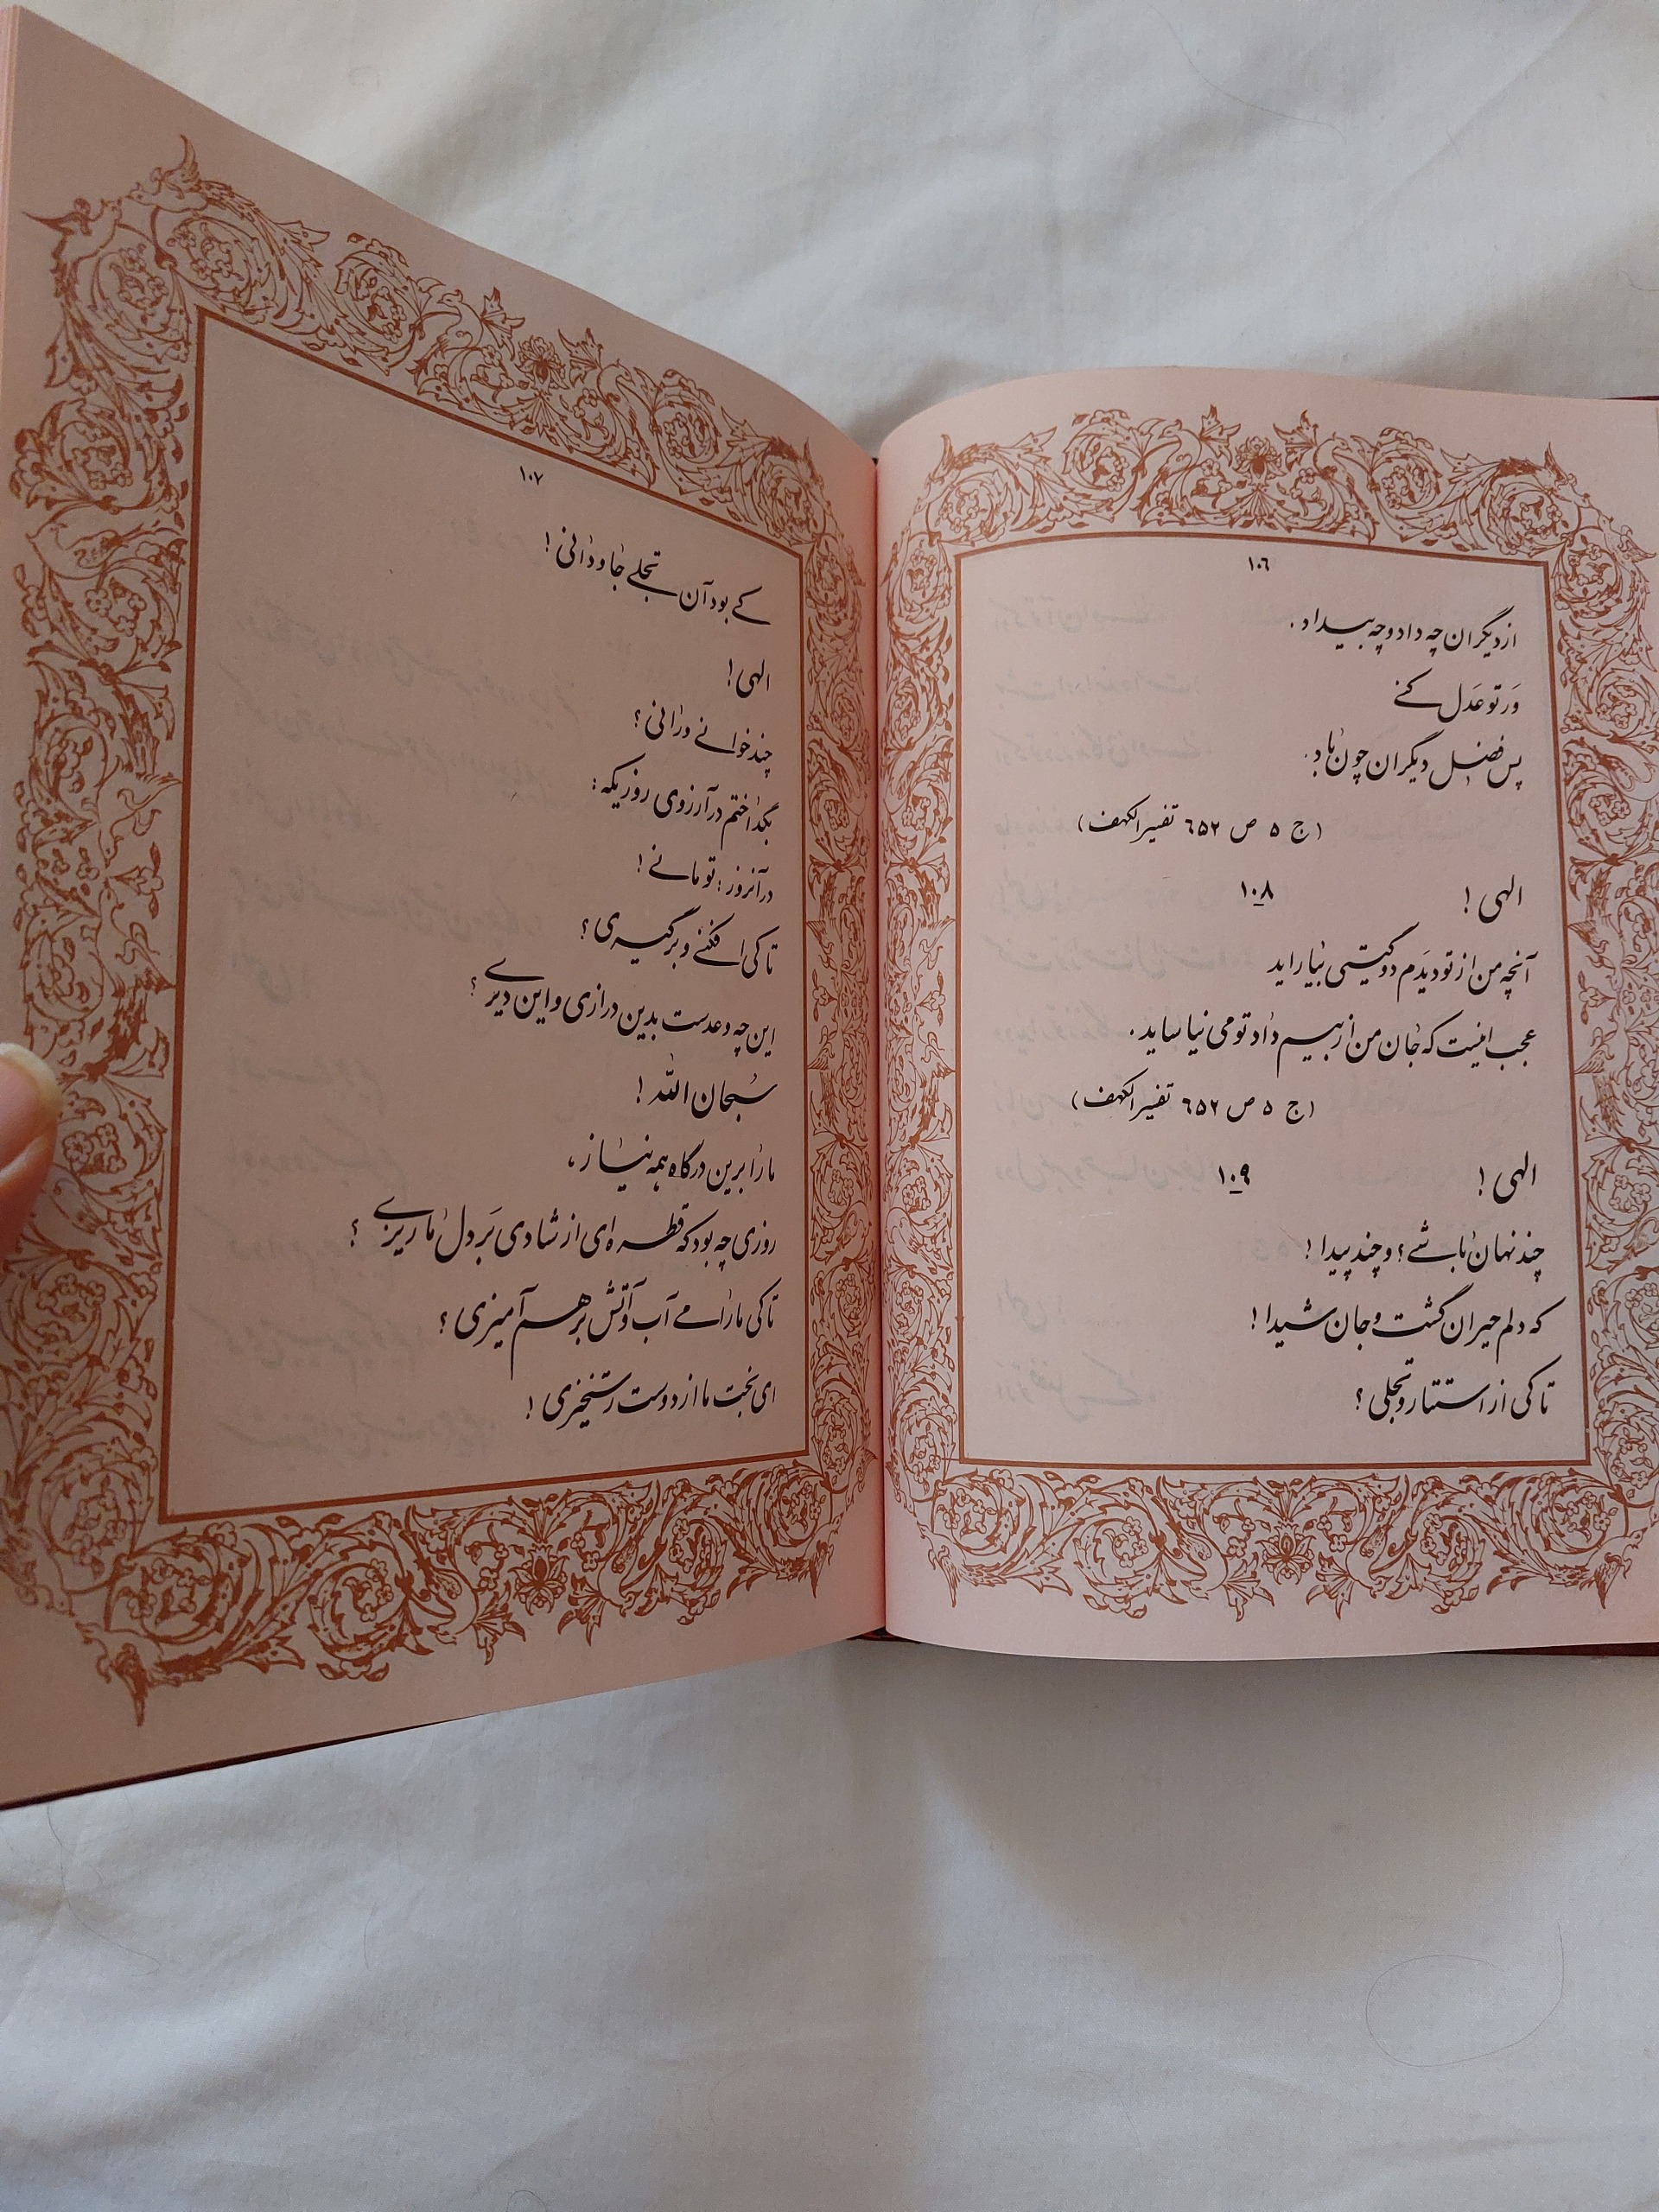 ١٠٦
از دیگران چه داد و چه بیداد.
وَر تو عَدل کنی
پس فضل دیگران چون باد.
(ج ٥ ص ٦٥٢ تفسیر الکهف)
الهی! ١٠٨
آنچه من از تو دیدم دو گیتی بیاراید
عجب اینست که جان من از بیم داد تو می نیاساید.
(ج ٥ ص ٦٥٢ تفسیر الکهف)
الهی! ١٠٩
چند نهان باشی؟ و چند پیدا!
که دلم حیران گشت و جان شیدا!
تا کی از استتار و تجلی؟
١٠٧
کی بود آن تجلی جاودانی!
الهی!
چند خوانی و رانی؟
بگداختم در آرزوی روزیکه:
در آنروز: تو مانی!
تا کی افکنی و برگیری؟
این چه وعدست بدین درازی و این دیری؟
سُبحان الله!
ما را برین درگاه همه نیاز،
روزی چه بود که قطره‌ای از شادی بَر دل ما ریزی؟
تا کی ما را می آب و آتش بر هم آمیزی؟
ای بخت ما از دوست رستخیزی!